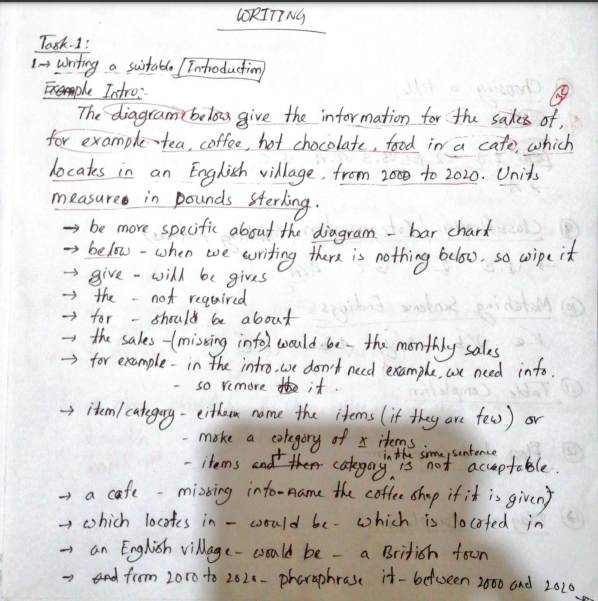 WRITING
Task-1:
1→ Writing a suitable [Introduction]
Example Intro:-
The diagram below give the information for the sales of,
for example tea, coffee, hot chocolate, food in a cafe, which
locates in an English village, from 2000 to 2020. Units
measures in Pounds Sterling.
→ be more specific about the diagram - bar chart
→ below - when we writing there is nothing below, so wipe it
→ give - will be gives
→ the - not required
→ for - should be about
→ the sales - (missing info) would be - the monthly sales
→ for example - in the intro, we don't need example, we need info.
- so remove it.
→ item/category - either name the items (if they are few) or
- make a category of x items
- items + category in the same sentence is not acceptable.
→ a cafe - missing info - name the coffee shop if it is given)
→ which locates in - would be - which is located in
→ an English village - would be - a British town
→ and from 2010 to 2020 - pharaphrase it - between 2000 and 2020